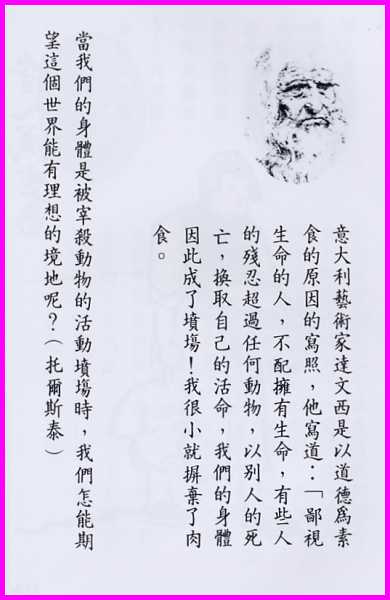 意大利藝術家達文西是以道德為素
食的原因的寫照，他寫道：「鄙視
生命的人，不配擁有生命，有些人
的殘忍超過任何動物，以別人的死
亡，換取自己的活命，我們的身體
因此成了墳塲！我很小就摒棄了肉
食。
當我們的身體是被宰殺動物的活動墳塲時，我們怎能期
望這個世界能有理想的境地呢？（托爾斯泰）